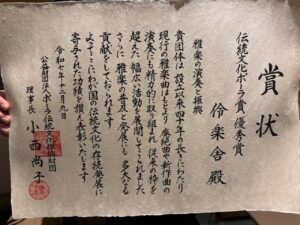 賞状
伝統文化ポーラ賞 優秀賞
伶楽舎 殿
雅楽の演奏と振興
貴団体は設立以来四十年の長きにわたり
現行の雅楽曲はもとより 廃絶曲や新作曲の
演奏にも精力的に取り組まれ 従来の枠を
超えた幅広い活動を展開してこられました
さらに 雅楽の普及と発展にも 多大なる
貢献をしておられます
よってここにわが国の伝統文化の存続発展に
寄与された功績を讃え表彰いたします
令和七年十二月九日
公益財団法人ポーラ伝統文化振興財団
理事長 小西尚子